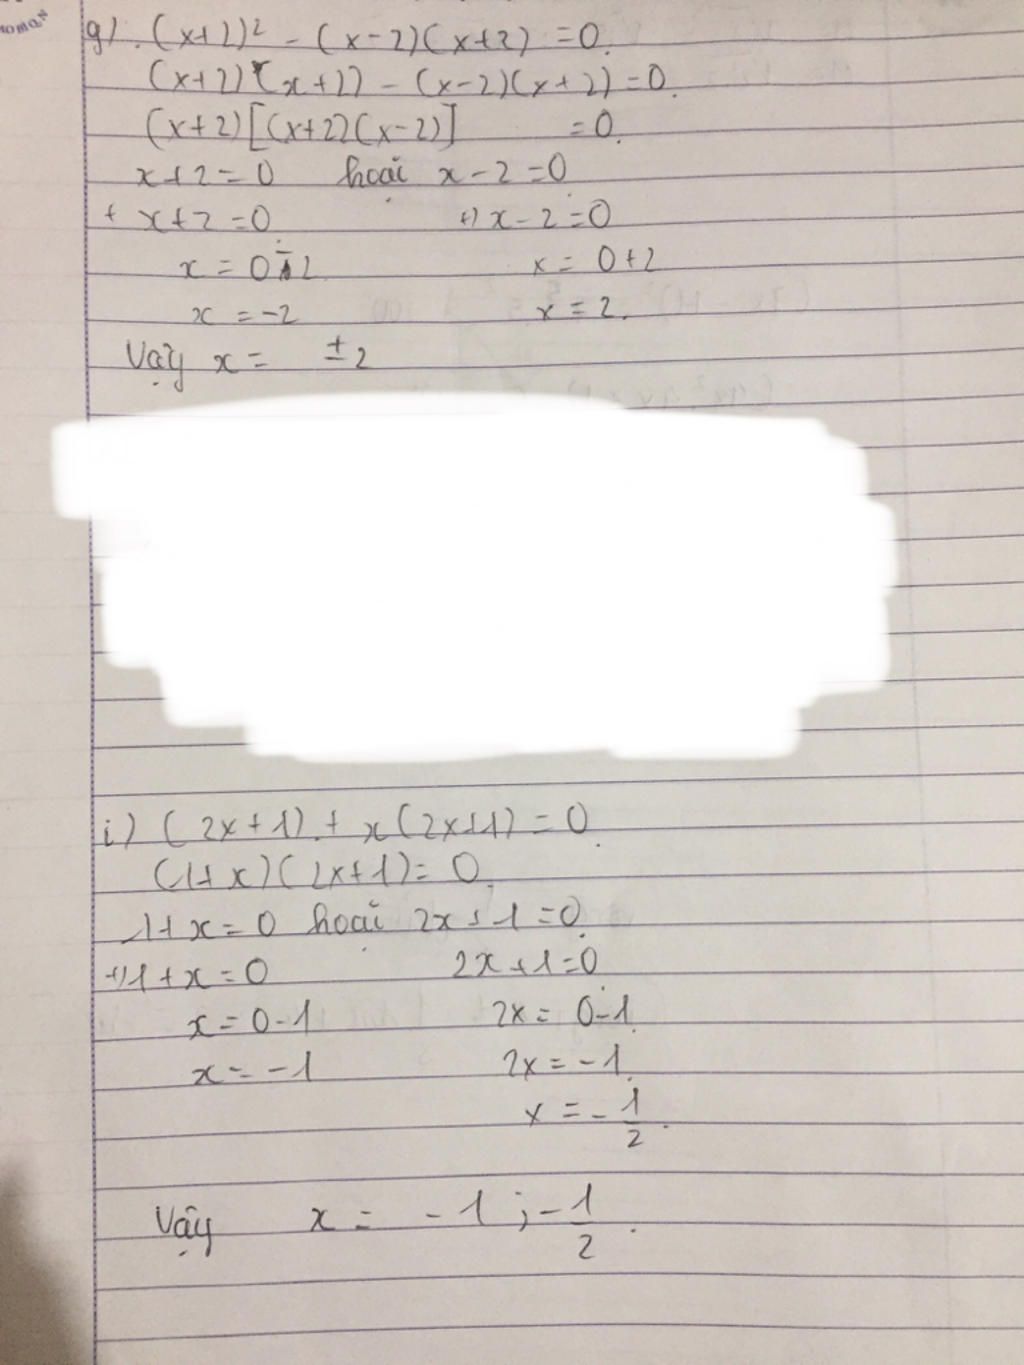 g) (x+2)² - (x-2)(x+2) = 0.
(x+2)(x+2) - (x-2)(x+2) = 0.
(x+2)[(x+2)(x-2)] = 0.
x+2=0 hoặc x-2=0
+ x+2=0 +) x-2=0
x = 0-2 x = 0+2
x = -2 x = 2.
Vậy x = ±2
i) (2x+1) + x(2x+1) = 0
(1+x)(2x+1) = 0.
1+x=0 hoặc 2x+1=0.
+) 1+x=0 2x+1=0
x = 0-1 2x = 0-1
x = -1 2x = -1.
x = -1/2.
Vậy x = -1 ; -1/2.